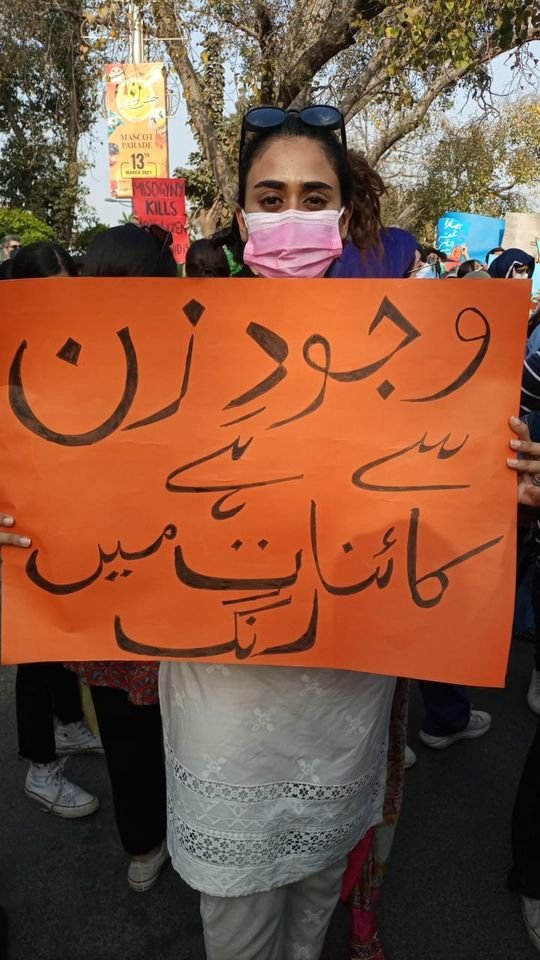 وجودِ زن
سے ہے
کائنات میں
رنگ
MASCOT
PARADE
13TH
MARCH 2021
MISOGYNY
KILLS